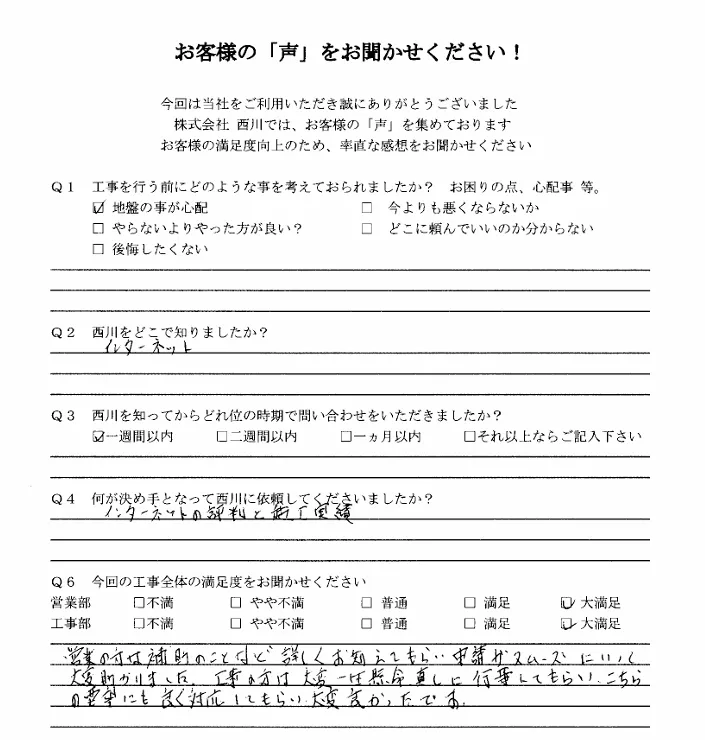 お客様の「声」をお聞かせください！
今回は当社をご利用いただき誠にありがとうございました
株式会社 西川では、お客様の「声」を集めております
お客様の満足度向上のため、率直な感想をお聞かせください
Ｑ１ 工事を行う前にどのような事を考えておられましたか？ お困りの点、心配事 等。
☑ 地盤の事が心配 □ 今よりも悪くならないか
□ やらないよりやった方が良い？ □ どこに頼んでいいのか分からない
□ 後悔したくない
Ｑ２ 西川をどこで知りましたか？
インターネット
Ｑ３ 西川を知ってからどれ位の時期で問い合わせをいただきましたか？
☑一週間以内 □二週間以内 □一ヵ月以内 □それ以上ならご記入下さい
Ｑ４ 何が決め手となって西川に依頼してくださいましたか？
インターネットの評判と施工実績
Ｑ６ 今回の工事全体の満足度をお聞かせください
営業部 □不満 □ やや不満 □ 普通 □ 満足 ☑ 大満足
工事部 □不満 □ やや不満 □ 普通 □ 満足 ☑ 大満足
営業の方は補助のことなど詳しくお知えてもらい申請がスムーズにいって
大変助かりました。工事の方は大変一生懸命真しに仕事してもらい、こちら
の要望にも良く対応してもらい大変良かったです。